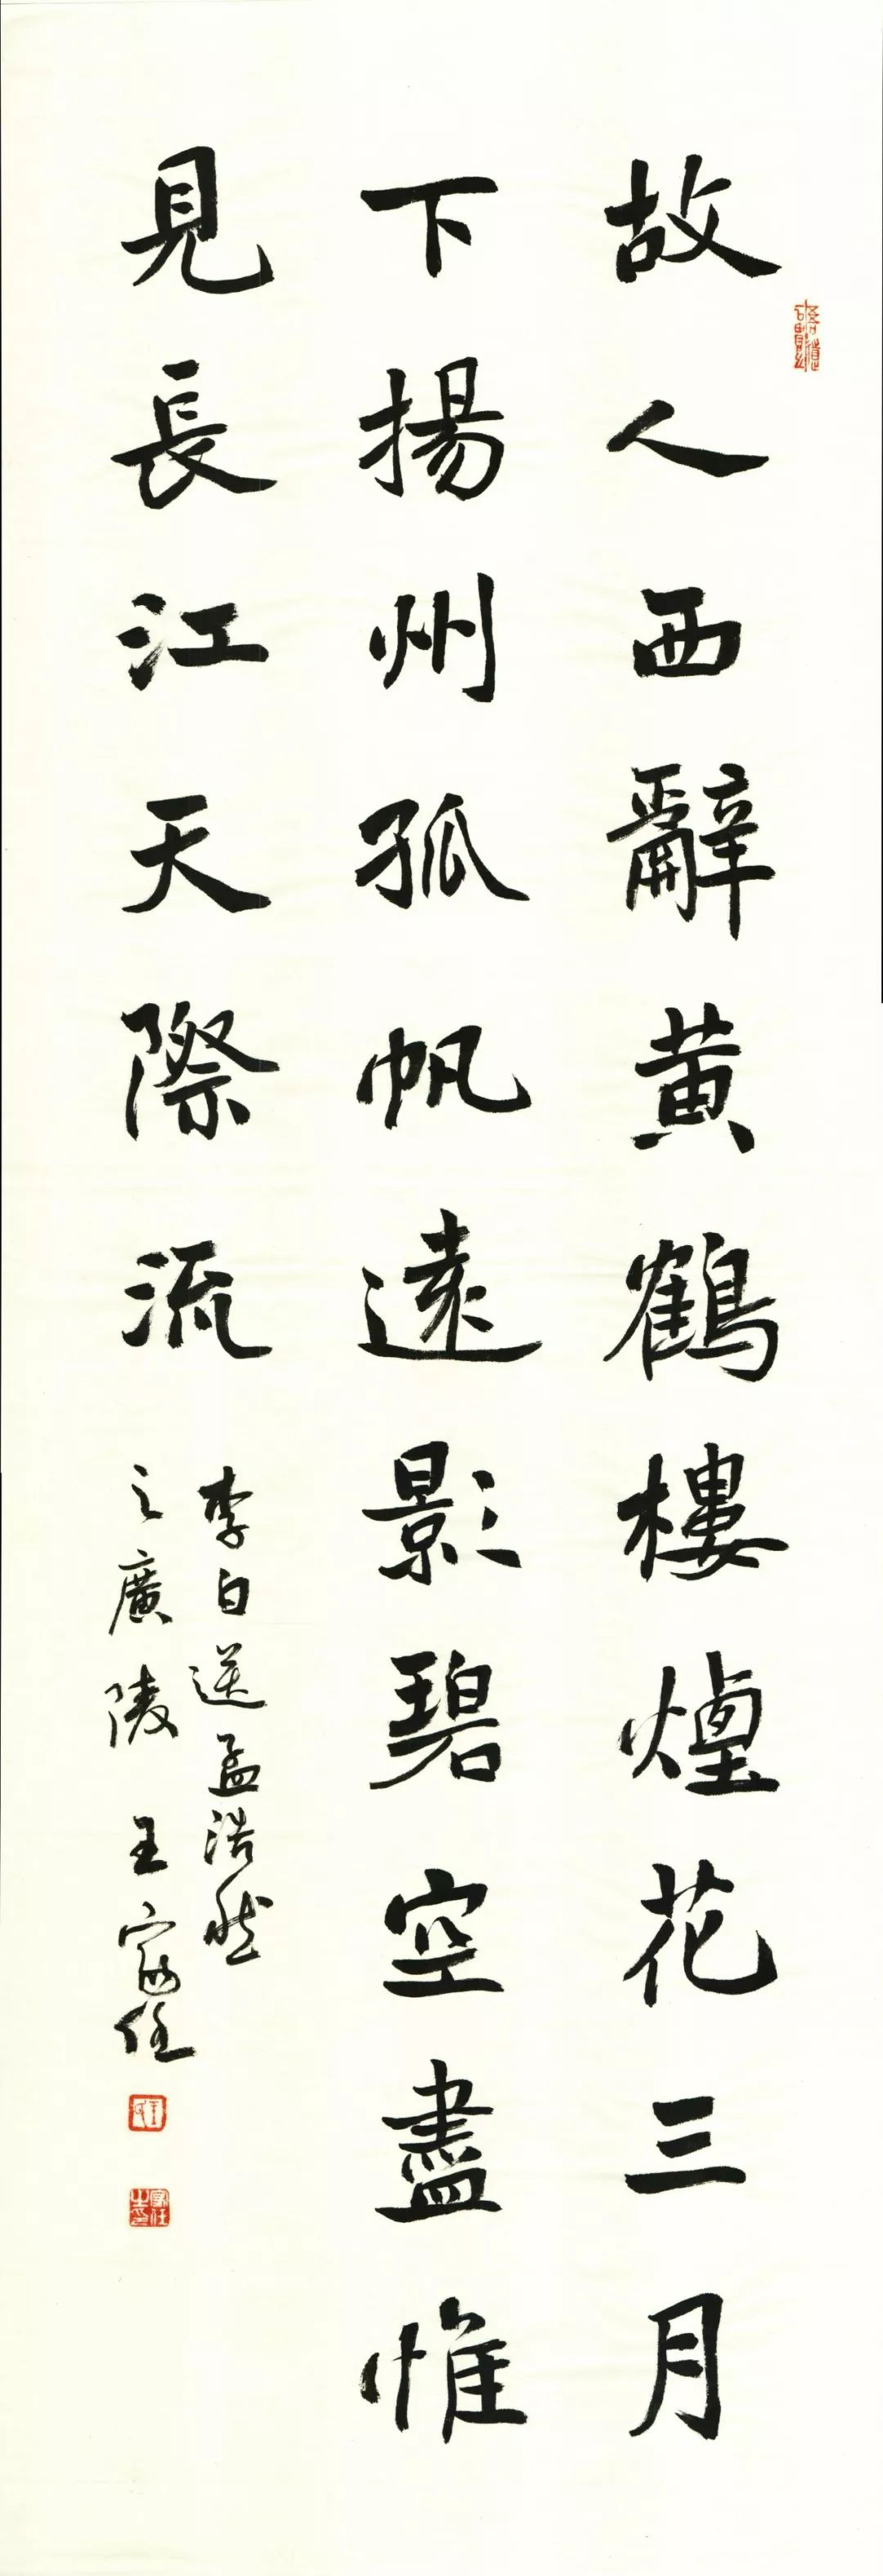 故人西辭黄鶴樓煙花三月
下揚州孤帆遠影碧空盡惟
見長江天際流
李白送孟浩然
之廣陵 王家任